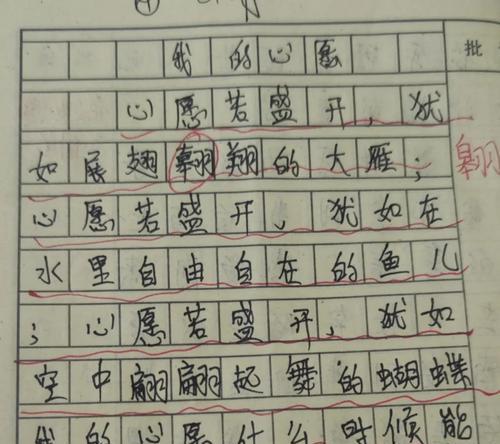 我的心愿
批
心愿若盛开，犹
如展翅翱翔的大雁；
翱
心愿若盛开，犹如在
水里自由自在的鱼儿
；心愿若盛开，犹如
空中翩翩起舞的蝴蝶
我的心愿什么时候能